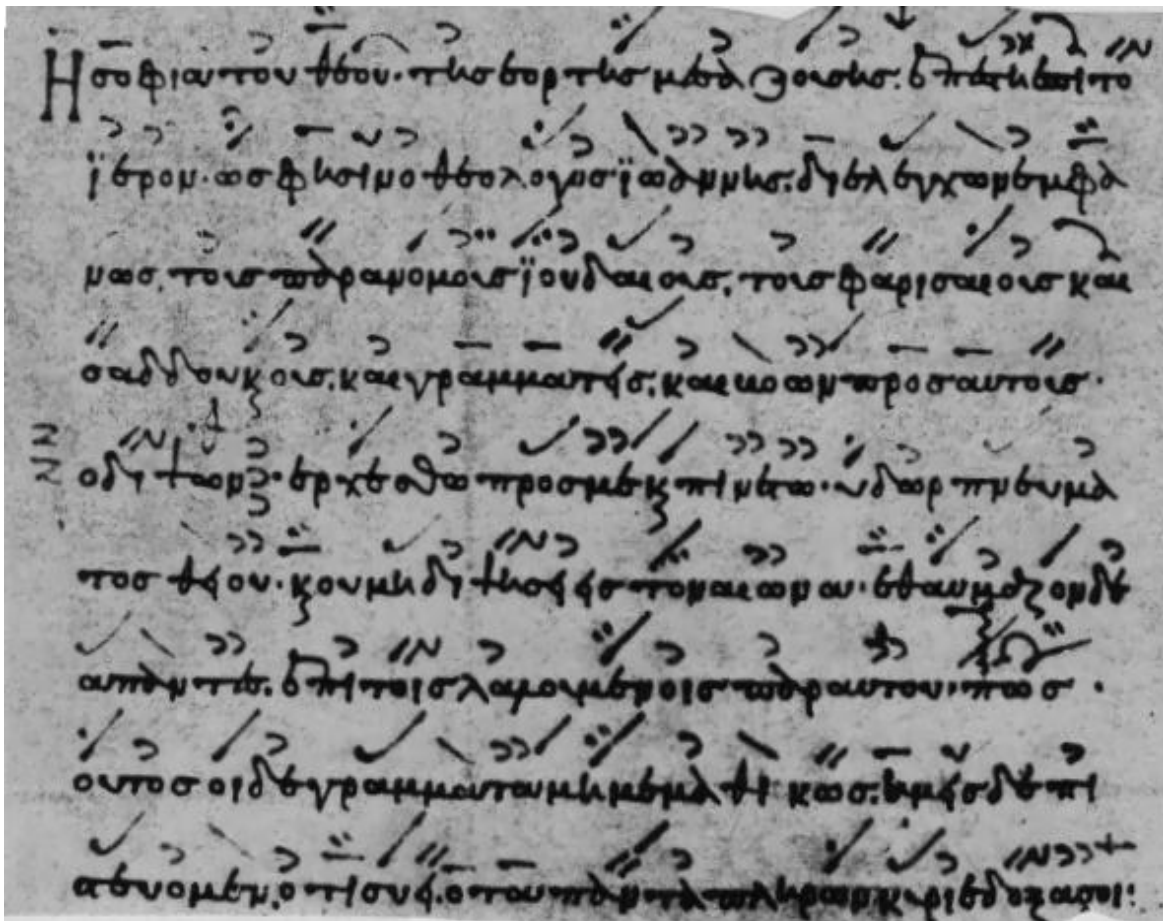 Η σοφια του θεου· της εορτης μεσαζουσης. επεστη επι το
ϊερον· ως φησιν ο θεολογος ϊωαννης. διελεγχων εμφα
νως. τοις παρανομοις ϊουδαιοις. τοις φαρισαιοις και
σαδδουκαιοις. και γραμματεις. και βοων προς αυτοις·
ο διψων· ερχεσθω προς με και πινετω· υδωρ πνευμα
τος θειου· και ου μη διψησει εις τον αιωνα· εθαυμαζον δε
απαντες. επι τοις λαλουμενοις παρ αυτου· πως
ουτος οιδε γραμματα μη μεμαθηκως. ημεις δε πι
στευομεν. οτι συ ει ο τα παντα πληρων κυριε δοξα σοι: